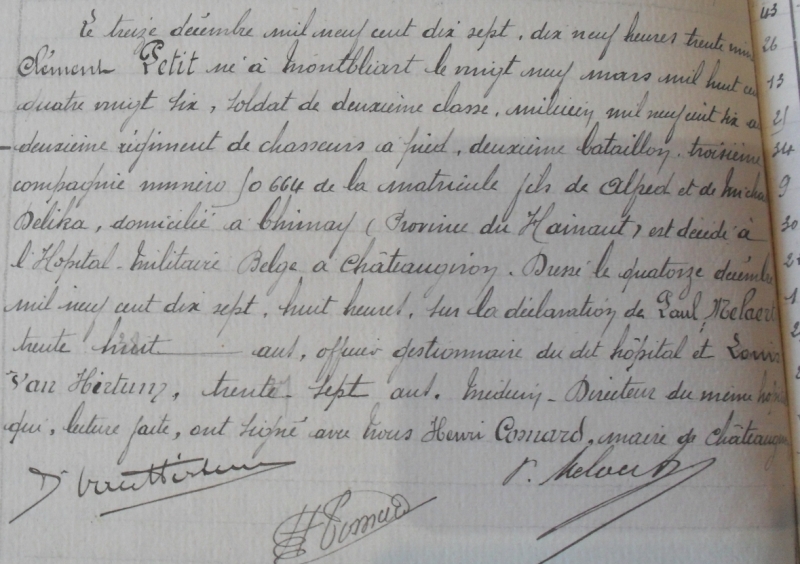 Le treize décembre mil neuf cent dix sept, dix neuf heures trente minu
Clément Petit né à Montbliart le vingt neuf mars mil huit cen
quatre vingt six, soldat de deuxième classe, milicien mil neuf cent six au
deuxième régiment de chasseurs a pied, deuxième bataillon, troisième
compagnie numéro 50664 de la matricule fils de Alfred et de
Delika, domicilié a Chimay (Province du Hainaut) est décédé à
l'Hopital-Militaire Belge à Châteaugiron. Dressé le quatorze décembre
mil neuf cent dix sept, huit heures, sur la déclaration de Paul Melaert
trente huit ans, officier gestionnaire du dit hôpital et Louis
Van Hertum, trente-sept ans. Médecin-Directeur du même hôpital
qui, lecture faite, ont signé avec nous Henri Cosnard, maire de Châteaugiron
Dr VanHirtum
P. Melaert
H Cosnard
43
26
13
21
34
9
30